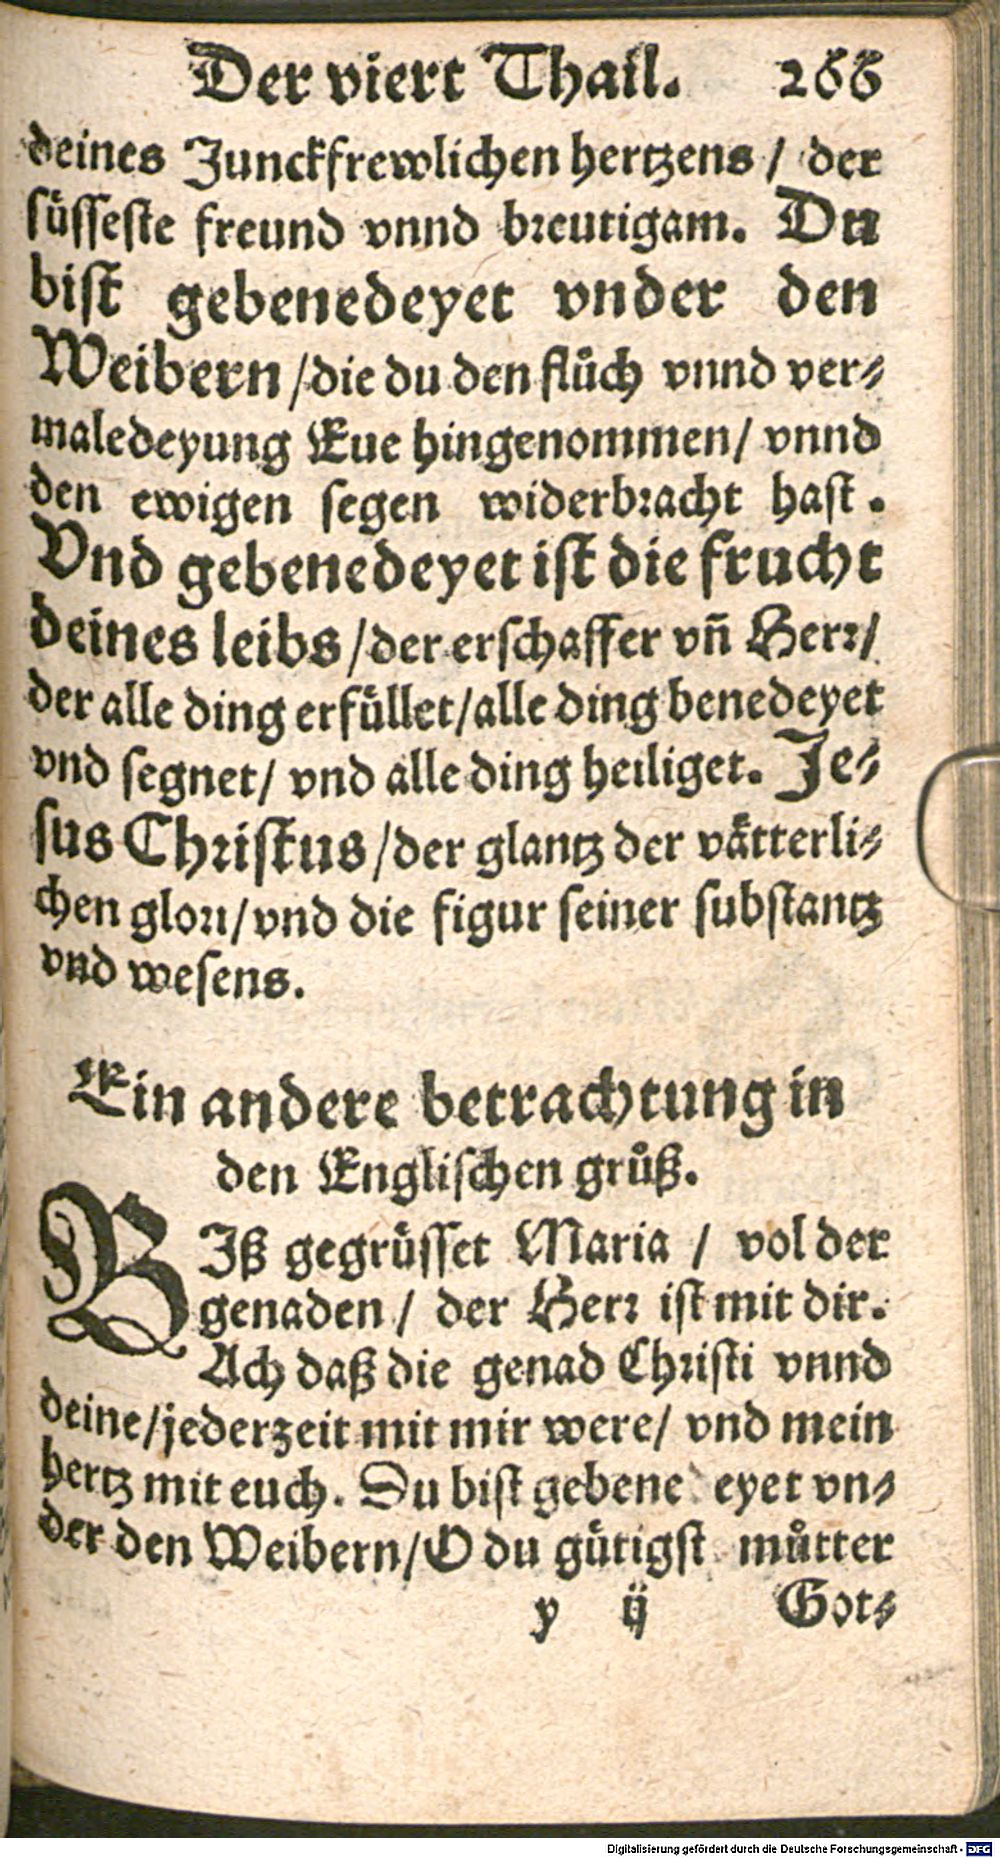 Der viert Thail. 266
deines Junckfrewlichen hertzens / der
süsseste freund vnnd breutigam. Du
bist gebenedeyet vnder den
Weibern / die du den flůch vnnd ver⸗
maledeyung Eue hingenommen / vnnd
den ewigen segen widerbracht hast.
Vnd gebenedeyet ist die frucht
deines leibs / der erschaffer vñ Herr /
der alle ding erfüllet / alle ding benedeyet
vnd segnet / vnd alle ding heiliget. Je⸗
sus Christus / der glantz der vätterli⸗
chen glori / vnd die figur seiner substantz
vnd wesens.
Ein andere betrachtung in
den Englischen grůß.
BIß gegrüsset Maria / vol der
genaden / der Herr ist mit dir.
Ach daß die genad Christi vnnd
deine / jederzeit mit mir were / vnd mein
hertz mit euch. Du bist gebenedeyet vn⸗
der den Weibern / O du gütigst můtter
y ij Got⸗
Digitalisierung gefördert durch die Deutsche Forschungsgemeinschaft - DFG